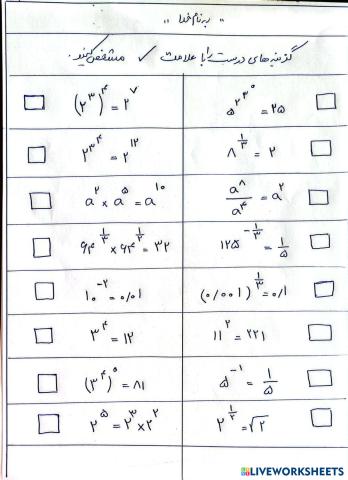 ,, به نام خدا ,,
گزینه های درست را با علامت ✓ مشخص کنید.
۵^۲^۳^۰ = ۲۵
(۲^۳)^۴ = ۲^۷
۸^(۱/۳) = ۲
۲^۳^۴ = ۲^۱۲
a^۸/a^۴ = a^۲
a^۲ × a^۵ = a^۱۰
۱۲۵^(-۱/۳) = ۱/۵
۶۴^(۱/۳) × ۶۴^(۱/۲) = ۳۲
(۰/۰۰۱)^(۱/۳) = ۰/۱
۱۰^-۲ = ۰/۰۱
۱۱^۲ = ۲۲۱
۳^۴ = ۱۲
۵^-۱ = ۱/۵
(۳^۴)^۰ = ۸۱
۲^(۱/۲) = √۲
۲^۵ = ۲^۳ × ۲^۲
LIVEWORKSHEETS